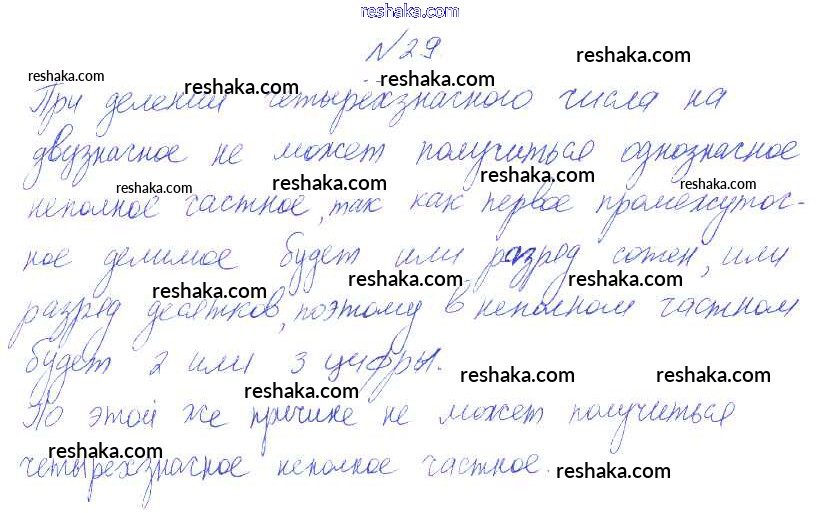 reshaka.com
№29
reshaka.com
reshaka.com
reshaka.com
reshaka.com
При делении четырёхзначного числа на
reshaka.com
reshaka.com
двузначное не может получиться однозначное
reshaka.com
reshaka.com
reshaka.com
reshaka.com
неполное частное, так как первое промежуточ-
ное делимое будет или разряд сотен, или
reshaka.com
reshaka.com
reshaka.com
разряд десятков, поэтому в неполном частном
будет 2 или 3 цифры.
reshaka.com
reshaka.com
reshaka.com
По этой же причине не может получиться
reshaka.com
reshaka.com
четырехзначное неполное частное.